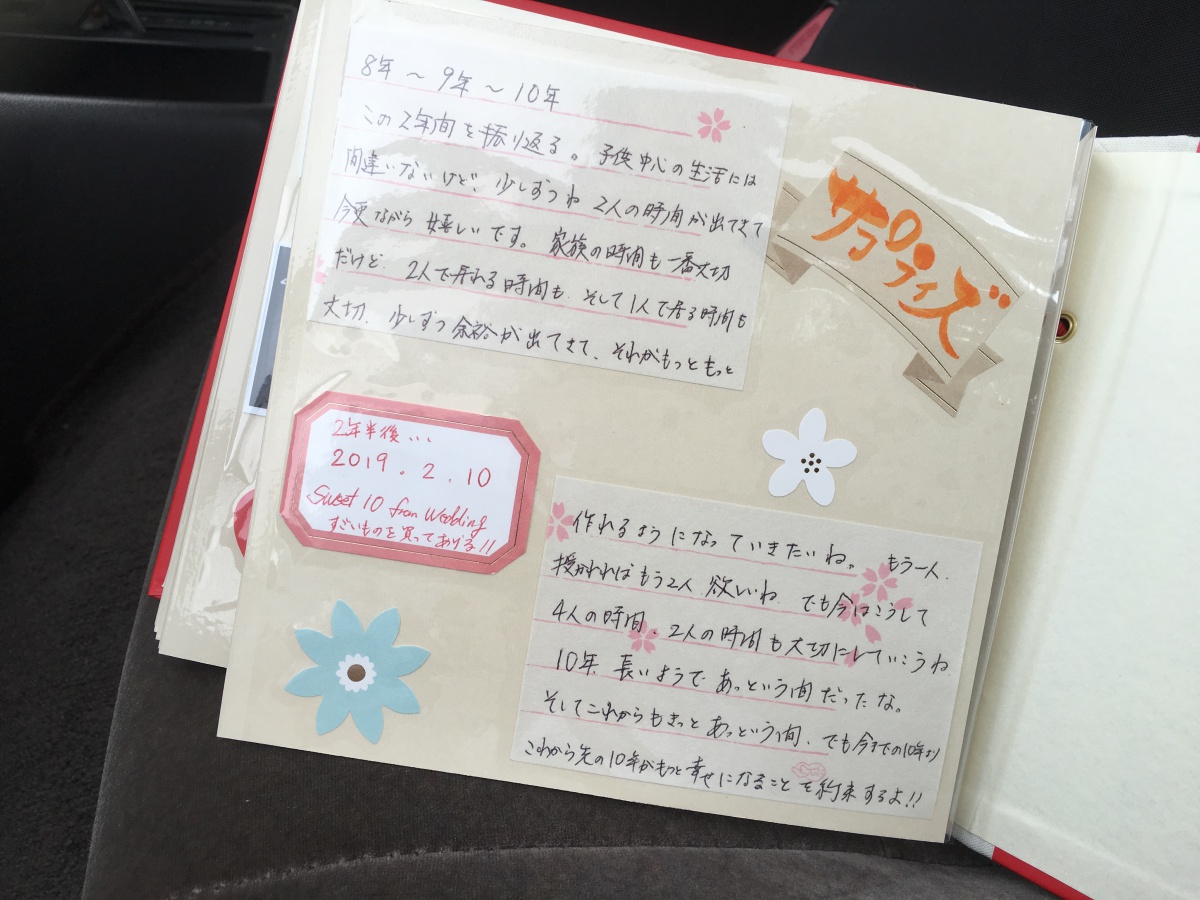 8年 〜 9年 〜 10年
この2年間を振り返る。 子供中心の生活には
間違いないけど、少しずつね 2人の時間が出てきて
今更ながら 嬉しいです。 家族の時間も一番大切
だけど、2人で居れる時間も、そして1人で居る時間も
大切、少しずつ余裕が出てきて、それがもっともっと
サプライズ
2年半後...
2019.2.10
Sweet 10 from Wedding
すごいものを買ってあげる!!
作れるようになっていきたいね。 もう一人、
授かれればもう2人 欲しいね、でも今はこうして
4人の時間、2人の時間も大切にしていこうね
10年、長いようで あっという間だったな。
そしてこれからもきっと あっという間、でも今までの10年より
これから先の10年がもっと幸せになることを約束するよ!!